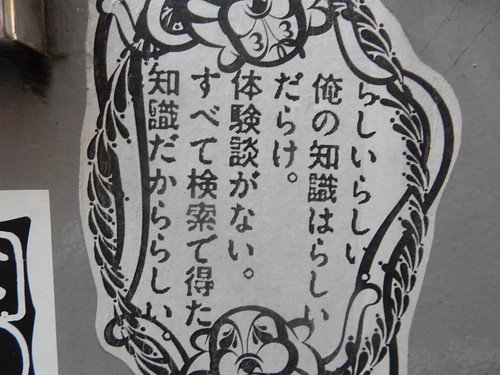 らしいらしい
俺の知識はらしい
だらけ。
体験談がない。
すべて検索で得た
知識だかららしい。